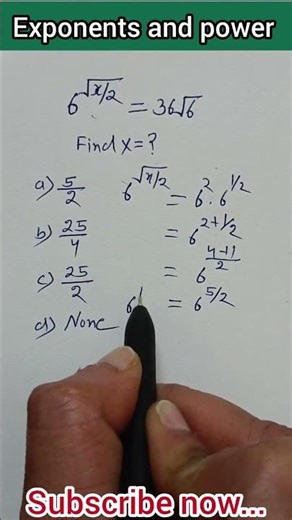 Exponents and power
6^√(x/2) = 36√6
Find X = ?
a) 5/2
6^√(x/2) = 6^2 · 6^(1/2)
b) 25/4
= 6^(2+1/2)
c) 25/2
= 6^((4+1)/2)
d) None
6 = 6^(5/2)
Subscribe now...